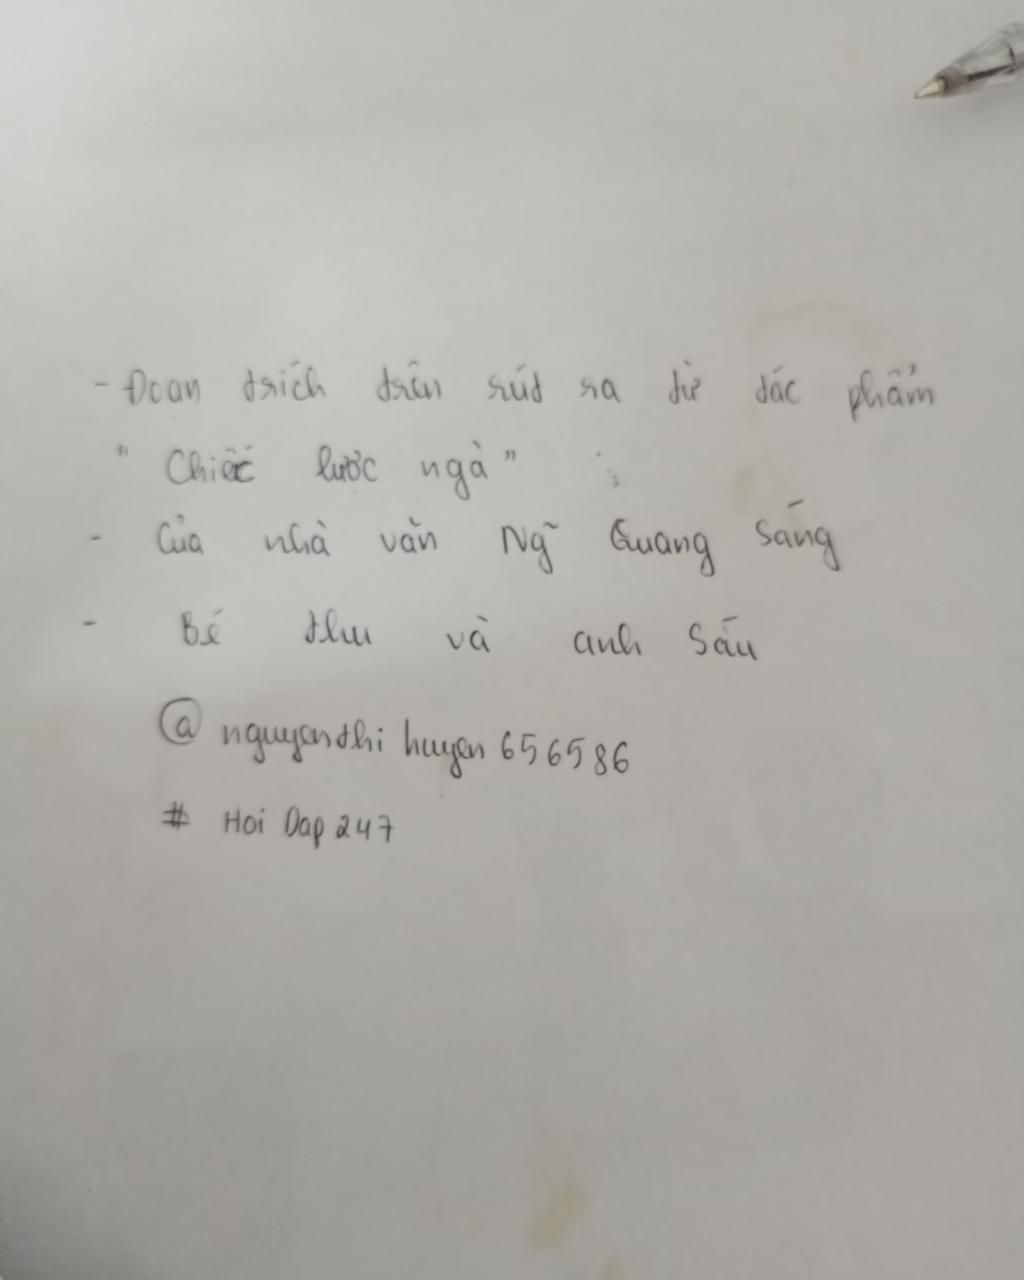 - Đoan trích trên rút ra từ tác phẩm
" Chiếc lược ngà"
- Của nhà văn Ng~ Quang Sáng
- Bé thu và anh Sáu
@ nguyenthi huyen 656586
# Hoi Dap 247